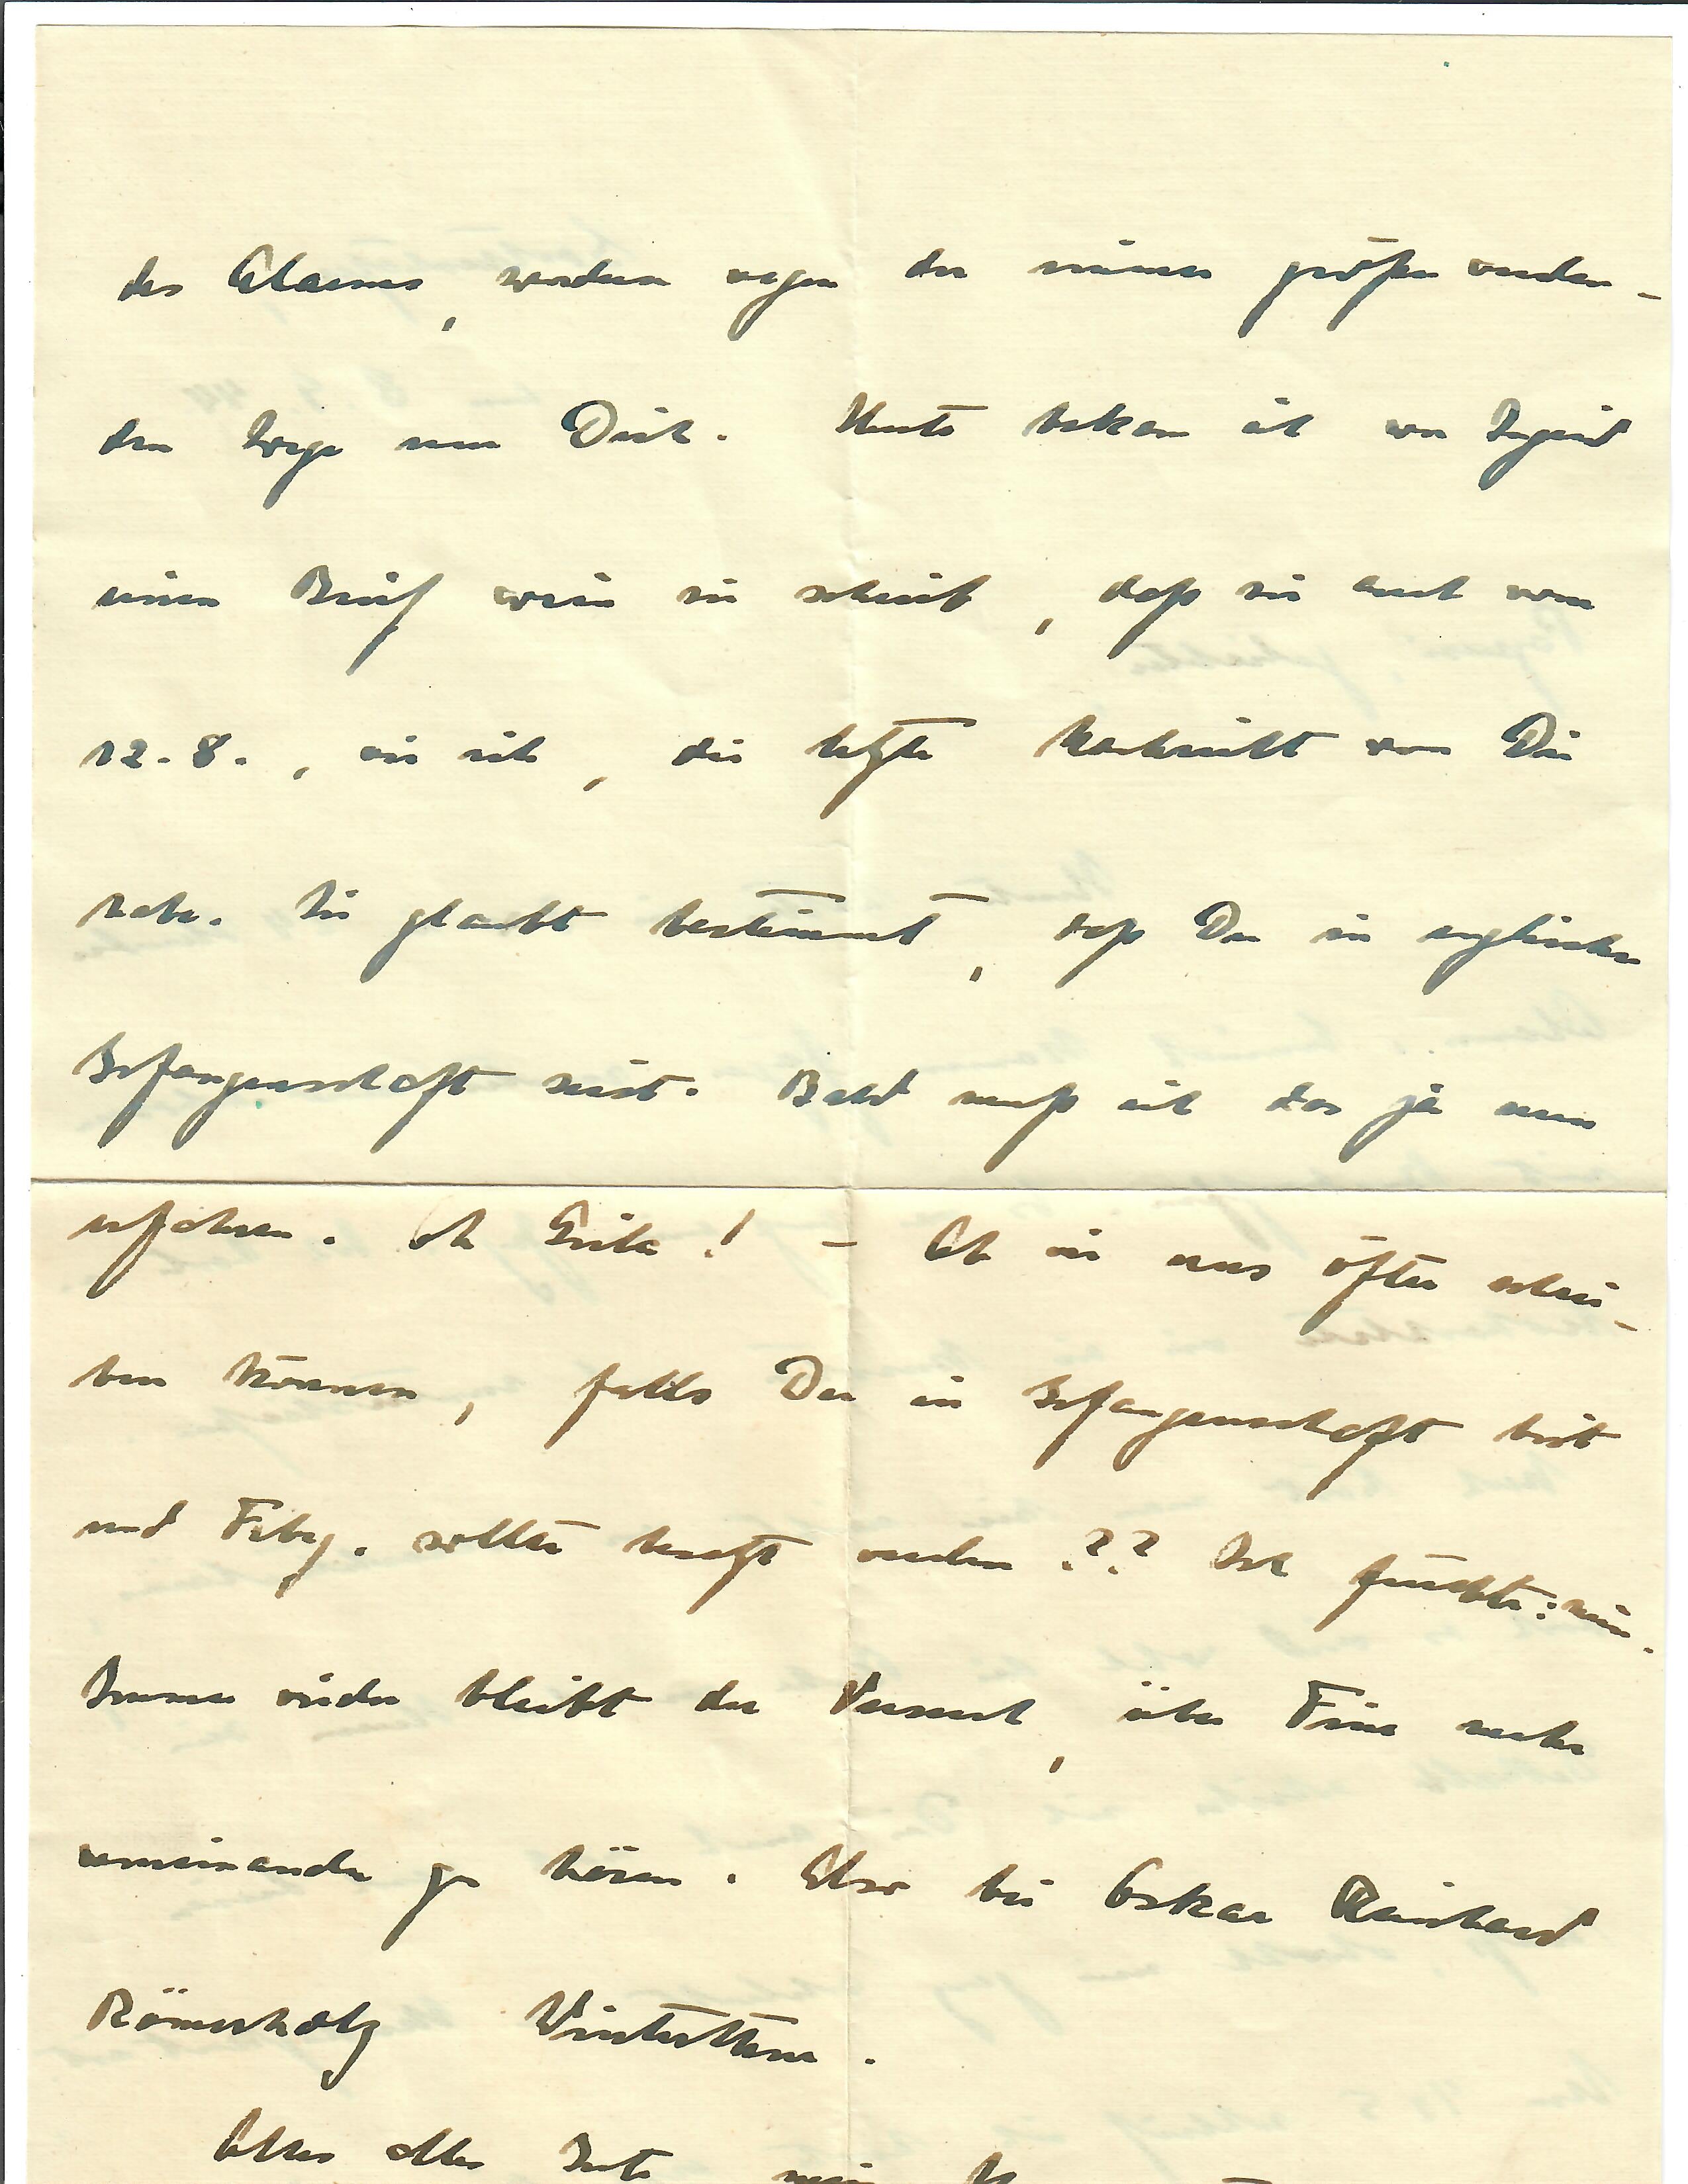 des Alarmes, sondern wegen der immer größer werden-
den Sorge um Dich. Heute bekam ich von Ingrid
einen Brief worin sie schreibt, daß sie auch vom
12.8., wie ich, die letzte Nachricht von Dir
habe. Sie glaubt bestimmt, daß Du in englischer
Gefangenschaft seist. Bald muß ich das ja nun
erfahren. Oh Erich! – Ob wir uns öfter schrei-
ben können, falls Du in Gefangenschaft bist
und Frbg. sollte besetzt werden?? Ich fürchte: nein.
Immer wieder bleibt der Versuch, über Fina mehr
voneinander zu hören. Also bei Oskar Reinhard
Römerholz Winterthur.
Alles alles Gute mein